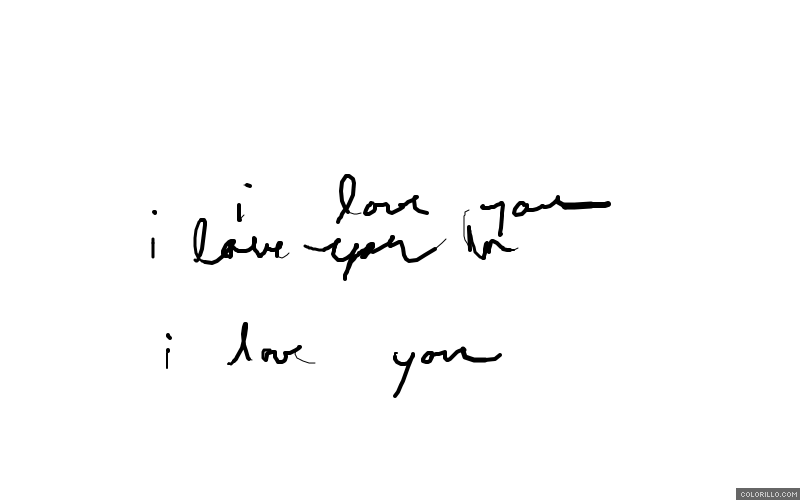 i love you
i love you
i love you
COLORILLO.COM